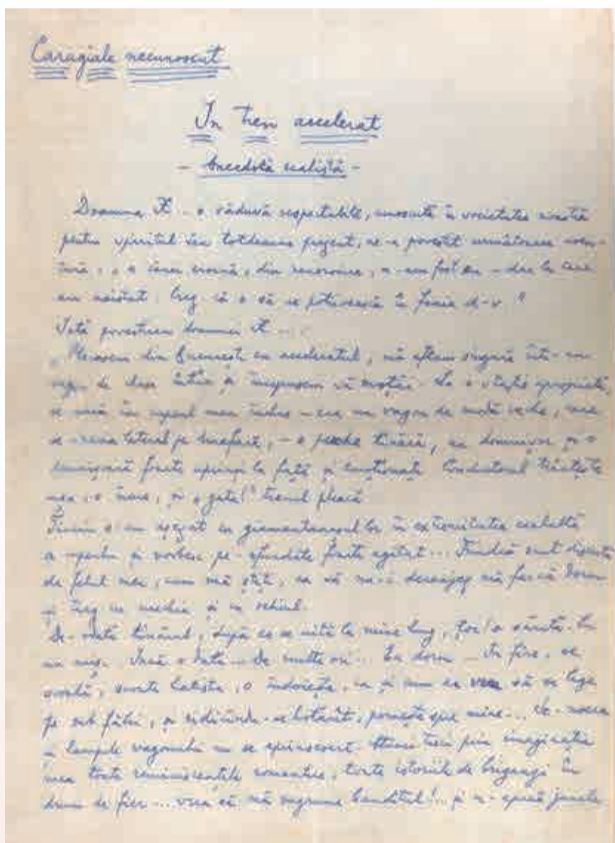 Caragiale necunoscut
In tren accelerat
- Anecdotă realistă -
Doamna X - o văduvă respectabilă, cunoscută în societatea noastră
pentru spiritul său totdeauna proaspăt, ne-a povestit următoarea aven-
tură, a cărei eroină, din nenorocire, n-am fost eu - dar la care
am asistat. Cred că o să se potrivească în foaia d-v.
Iată povestirea doamnei X...
"Plecasem din București cu acceleratul, mă aflam singură într-un
vagon de clasa întâia și începusem să moțăi. La o stație apropiată,
se urcă în cupeul meu - era un vagon de modă veche, care
se lateral pe - o pereche tânără, un domnișor și o
domnișoară foarte aprinși la față și Conductorul trântește
ușa, și "gata!" trenul pleacă
Tinerii s-au așezat cu geamantanașul lor în extremitatea cealaltă
a cupeului și vorbesc pe foarte agitat... Fiindcă sunt discretă
de felul meu, cum mă știți, ca să nu-i deranjez mă fac că dorm
și trag cu urechea și cu ochiul.
De-odată tânărul, după ce se uită la mine lung, țoc! o sărută. Eu
nu mișc. Încă o dată... de multe ori... Eu dorm...
scoate batista, o îndoiește, ca și cum ar vrea să se lege
pe sub fălci, și ridicându-se hotărât, pornește spre mine...
și lampele vagonului nu se aprinseseră. Atunci trecu prin imaginația
mea toate reminiscențele romantice, toate istoriile de briganzi în
drum de fier... vrea să mă sugrume banditul!.. și